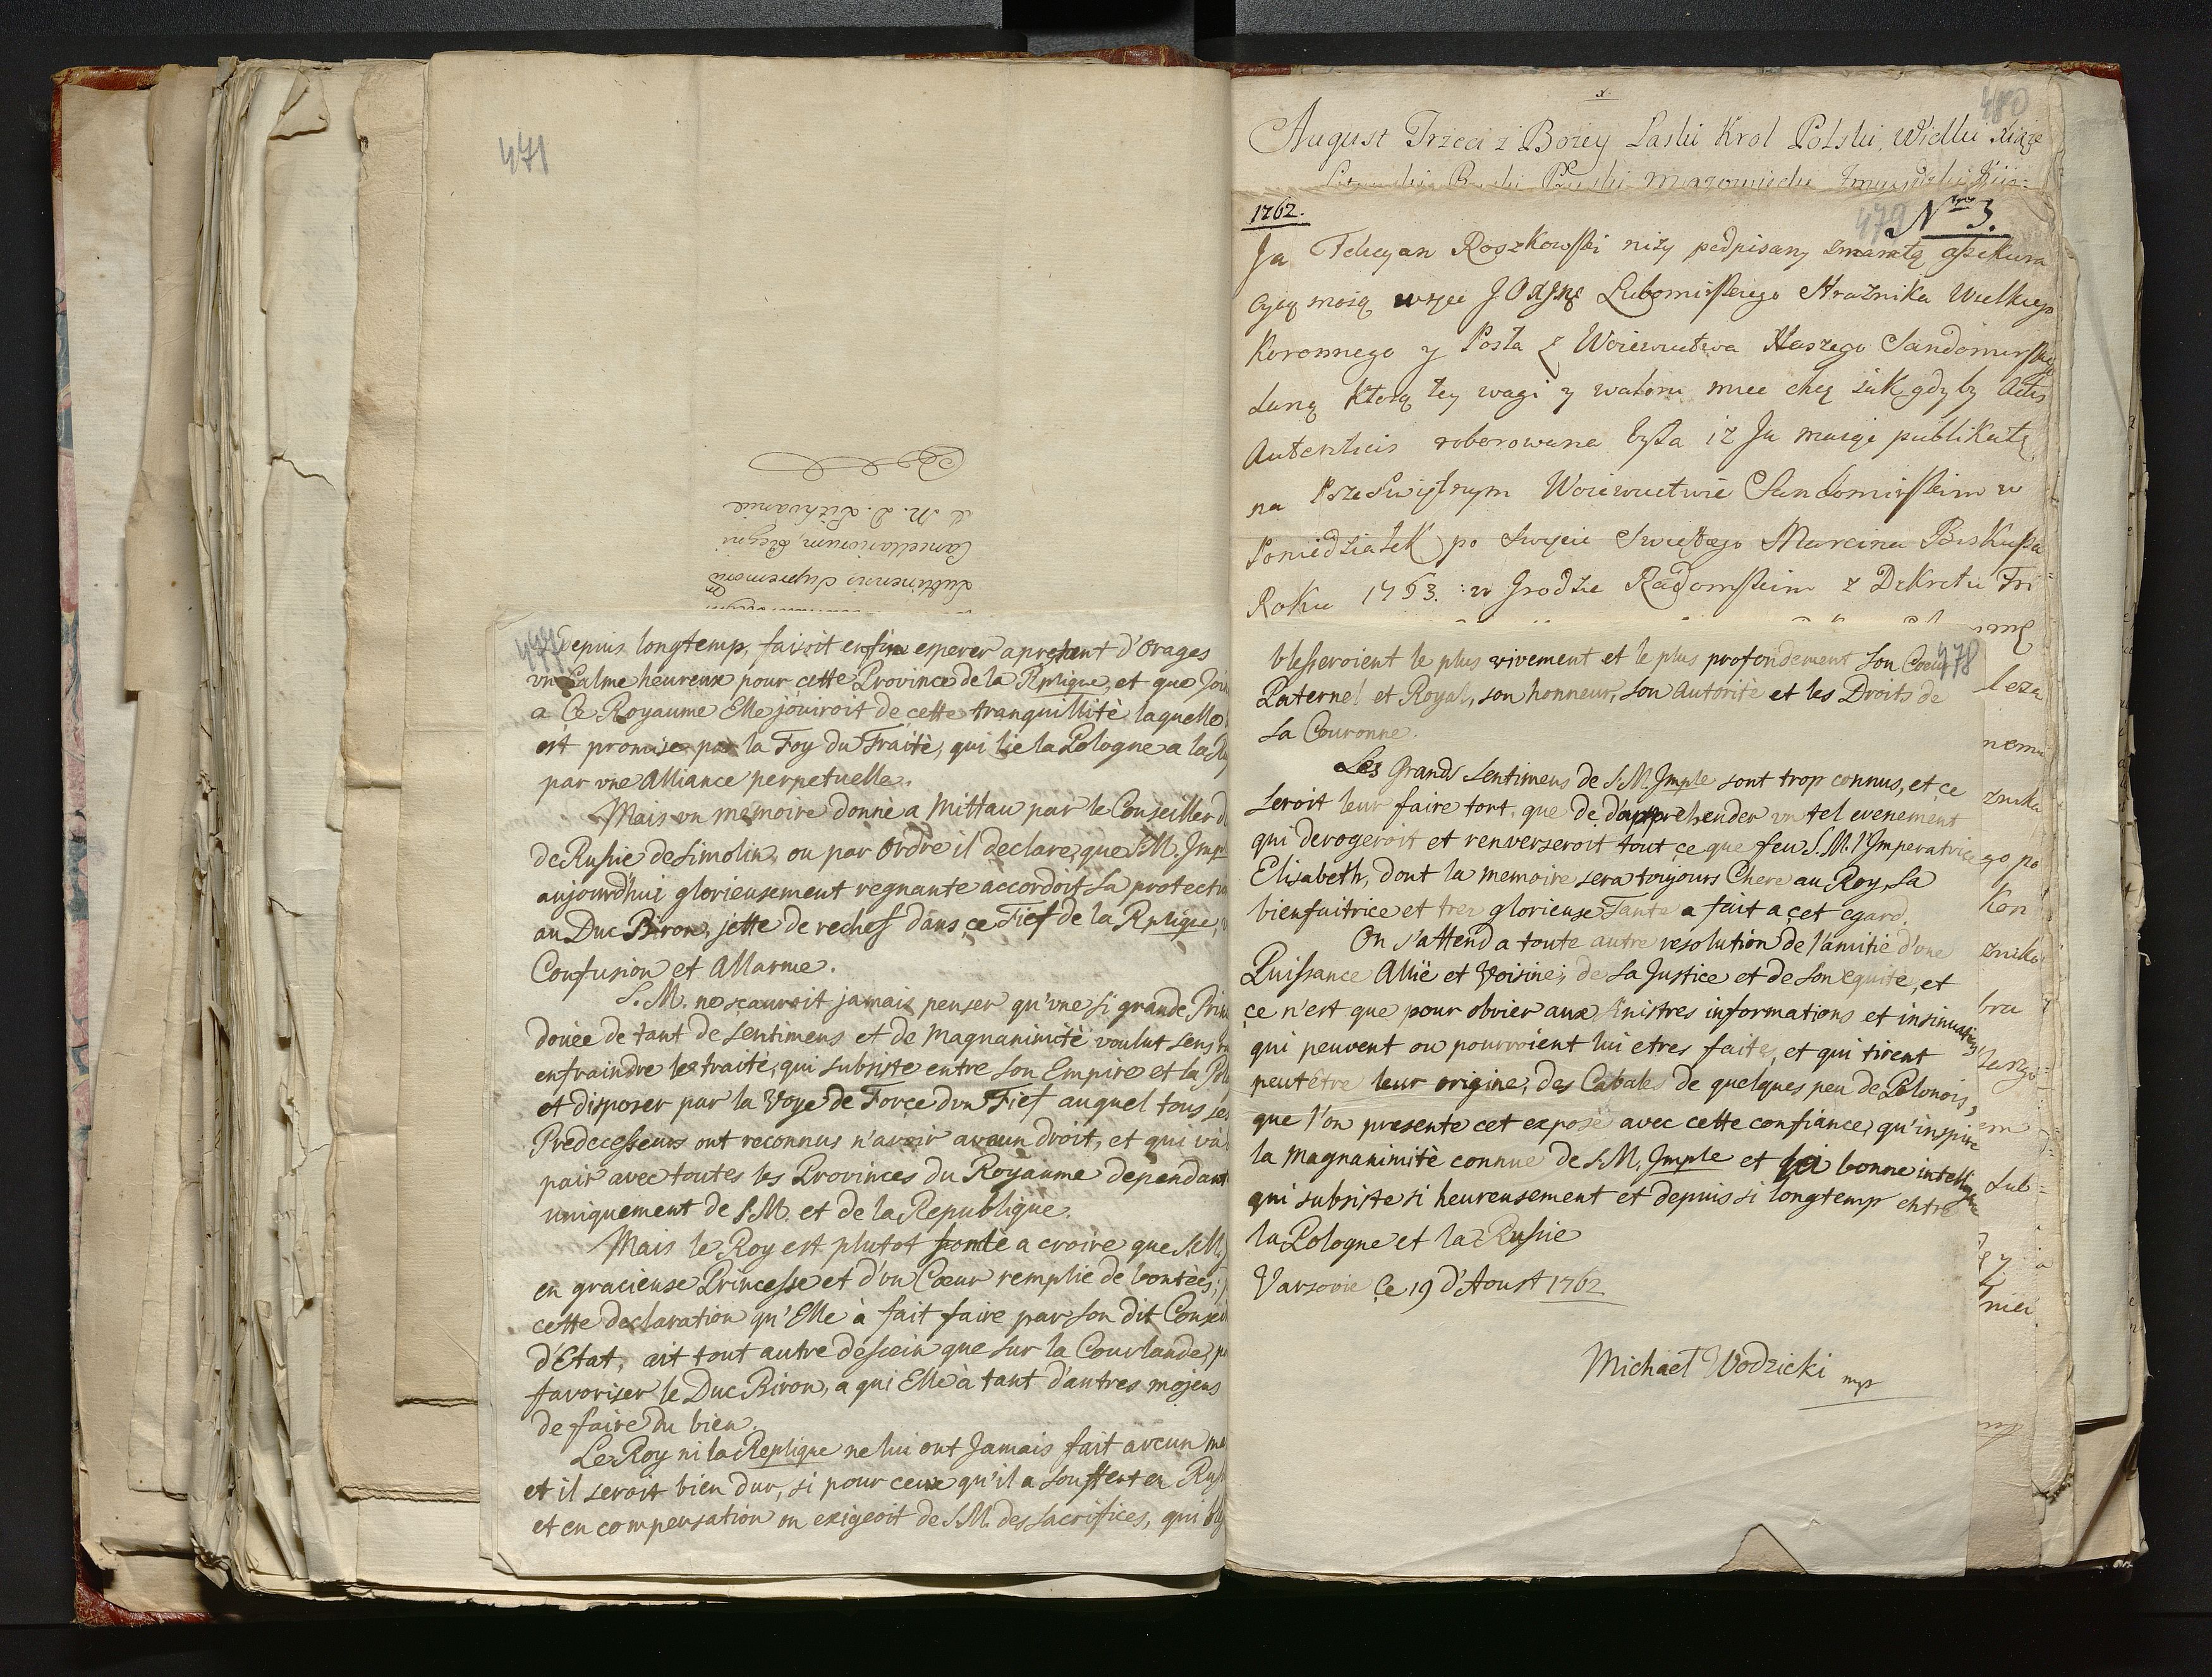 471
Lublinensis Supremorũ
Cancellariorum, Regni
& M. D. Lithvaniæ
477
Depuis longtemp, faisoit enfin esperer apresent d'Orages
vn Calme heureux pour cette Province de la Rplique, et que
a Ce Royaume Elle jouiroit de cette tranquillitè laquelle
est promise par la Foy du Traitè, qui lie la Pologne a la
par vne Alliance perpetuelle.
Mais vn memoire donnè a Mittau par le Conseiller
de Russie de Simolin, ou par Ordre il declare, que S.M. Imp
aujourd'hui glorieusement regnante accordoit sa protecti
au Duc Biron, jette de rechef dans çe Fief de la Rplique,
Confusion et Allarme.
S.M. ne sçauroit jamais penser qu'vne si grande Prin
douée de tant de sentimens et de Magnanimitè voulut sens
enfraindre le traitè, qui subsiste entre son Empire et la Pol
et disposer par la Voye de Force d'vn Fief auquel tous ses
Predecesseurs ont reconnus n'avoir aucun droit, et qui và
pair avec toutes les Provinces du Royaume dependant
vniquement de S.M. et de la Republique.
Mais le Roy est plutot portè a croire que S.M.
en gracieuse Princesse et d'vn Cœur remplie de bontèes,
cette declaration qu'Elle à fait faire par son dit Consei
d'Etat, ait tout autre dessein que sur la Courlande,
favoriser le Duc Biron, a qui Elle à tant d'autres mojens
de faire du bien.
Le Roy ni la Replique ne lui ont Jamais fait avcun
et il seroit bien dur, si pour ceux qu'il a souffert en Rus
et en compensation on exigeoit de S.M. des sacrifices, qui
480
August Trzeci z Bożey Łaski Krol Polski, Wielki Xiąże
1762.
479 Nro 3.
Ja Felicyan Roszkowski niży podpisany assekura
cyią moią Lubomirskiego Strażnika Wielkiego
Koronnego y Posła z Woiewuctwa Naszego Sandomirskie
daną ktorą tey wagi y waloru miec chcę iak gdyby Actis
Autenticis roborowana była iż Ja maiąc publikatę
na Przeświętnym Woiewuctwie Sandomirskim w
Poniedziałek po Swięcie Swiętego Marcina Biskupa
Roku 1763. w Grodzie Radomskim z Dekretu Tri
478
blesseroient le plus vivement et le plus profondement son Coeur
Paternel et Royal, son honneur, son Autoritè et les Droits de
sa Couronne.
Les Grands sentimens de S.M. Imple sont trop connus, et çe
seroit leur faire tort, que de d'apprehender vn tel evenement
qui derogeroit et renverseroit tout çe que feu S.M. l'Imperatrice
Elisabeth, dont la memoire sera toujours Chere au Roy, sa
bienfaitrice et trez glorieuse Tante a fait a çet egard.
On s'attend a toute autre resolution de l'amitié d'vne
Puissance Alliè et Voisine, de sa Justice et de son equité, et
çe n'est que pour obvier aux sinistres informations et insinuations
qui peuvent ou pourroient lui etres faites, et qui tirent
peutêtre leur origine, des Cabales de quelques peu de Polonois,
que l'on presente cet exposè avec cette confiance, qu'inspire
la Magnanimitè connue de S.M. Imple et la bonne intelligence
qui subsiste si heureusement et depuis si longtemp entre
la Pologne et la Russie
Varsovie Çe 19 d'Aoust 1762
Michael Wodzicki mp